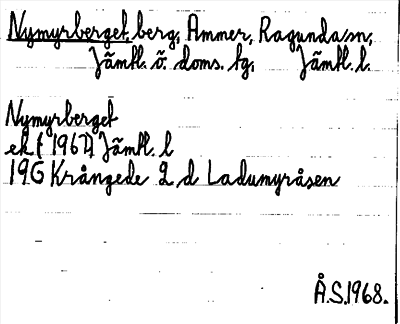 Nymyrberget, berg, Ammer, Ragunda sn,
Jämtl. ö. doms. tg, Jämtl. l.
Nymyrberget
ek. (1961) Jämtl. l
19G Krångede 2 d Ladumyråsen
Å.S. 1968.